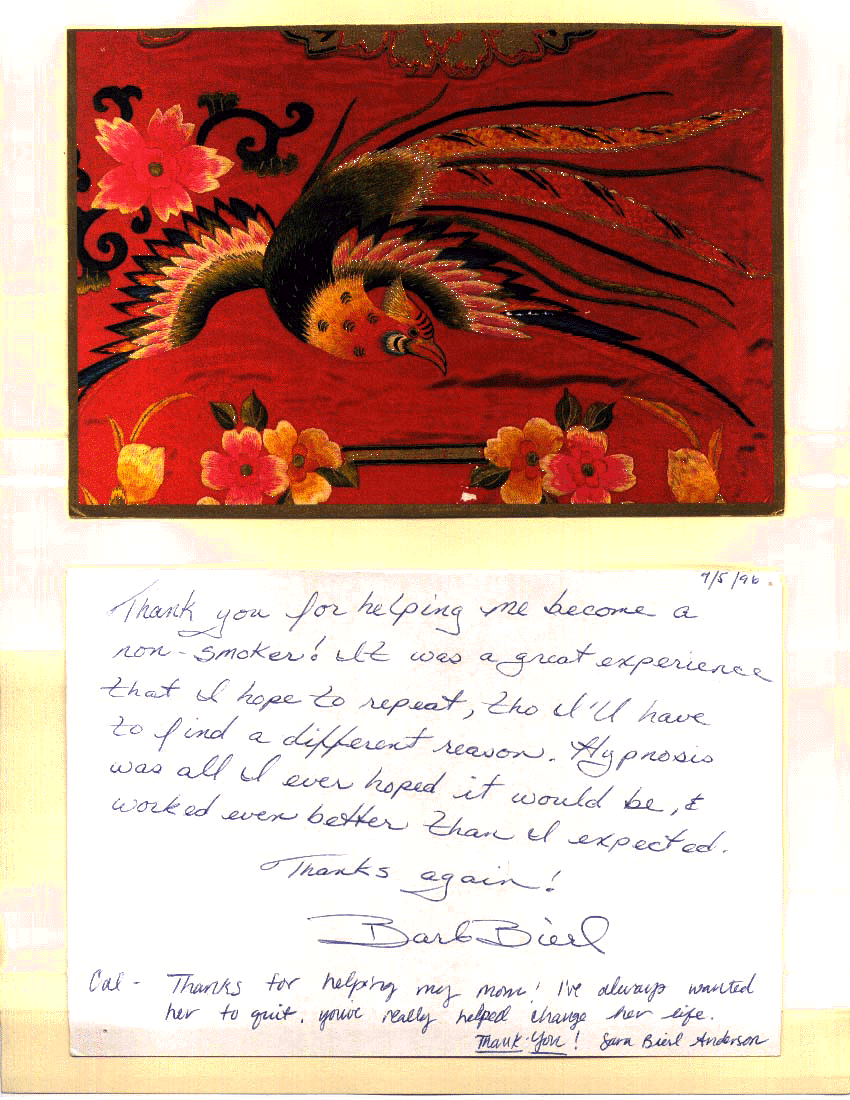 9/5/96
Thank you for helping me become a
non-smoker! It was a great experience
that I hope to repeat, tho I'll have
to find a different reason. Hypnosis
was all I ever hoped it would be, &
worked even better than I expected.
Thanks again!
Barb Bierl
Cal - Thanks for helping my mom! I've always wanted
her to quit. you've really helped change her life.
Thank-You! Sara Bierl Anderson